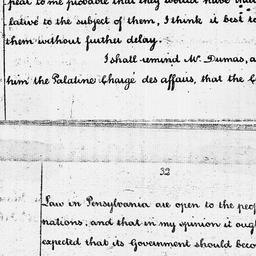 pear to me probable that they would have
lative to the subject of them, I think it best to
them without further delay.
I shall remind Mr. Dumas, a
him the Palatine Chargé des affais, that the C
32
Law in Pensylvania are open to the peop
nations, and that in my opinion it oug
expected that its Government should beco